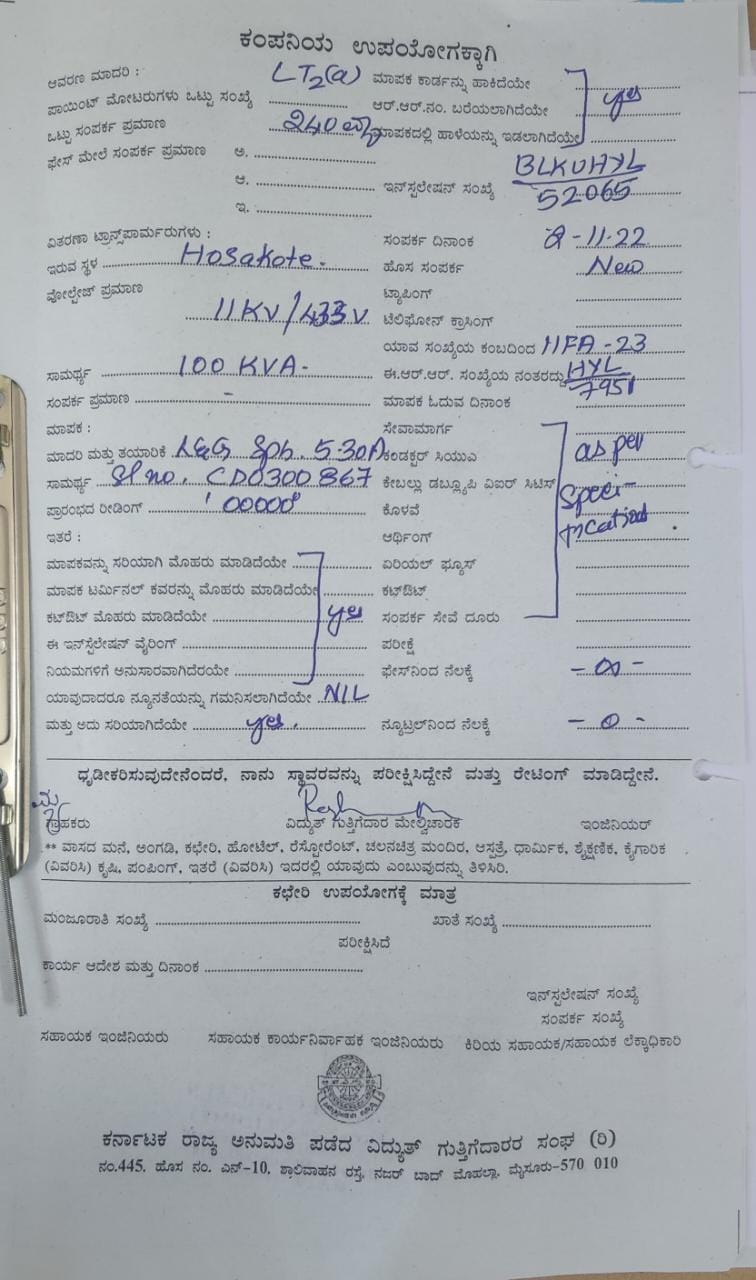 ಕಂಪನಿಯ ಉಪಯೋಗಕ್ಕಾಗಿ
ಆವರಣ ಮಾದರಿ : LT2(a) ಮಾಪಕ ಕಾರ್ಡನ್ನು ಹಾಕಿದೆಯೇ
ಪಾಯಿಂಟ್ ಮೋಟರುಗಳು ಒಟ್ಟು ಸಂಖ್ಯೆ ಆರ್.ಆರ್.ನಂ. ಬರೆಯಲಾಗಿದೆಯೇ yes
ಒಟ್ಟು ಸಂಪರ್ಕ ಪ್ರಮಾಣ 240 ಮಾಪಕದಲ್ಲಿ ಹಾಳೆಯನ್ನು ಇಡಲಾಗಿದೆಯೇ
ಫೇಸ್ ಮೇಲೆ ಸಂಪರ್ಕ ಪ್ರಮಾಣ ಅ. BLKUHYL
ಆ. ಇನ್‌ಸ್ಟಲೇಷನ್ ಸಂಖ್ಯೆ 52065
ಇ.
ವಿತರಣಾ ಟ್ರಾನ್ಸ್‌ಪಾರ್ಮರುಗಳು : ಸಂಪರ್ಕ ದಿನಾಂಕ 2-11-22
ಇರುವ ಸ್ಥಳ Hosakote. ಹೊಸ ಸಂಪರ್ಕ New
ವೋಲ್ಟೇಜ್ ಪ್ರಮಾಣ ಟ್ಯಾಪಿಂಗ್
11KV/433V ಟೆಲಿಫೋನ್ ಕ್ರಾಸಿಂಗ್
ಯಾವ ಸಂಖ್ಯೆಯ ಕಂಬದಿಂದ HFA-23
ಸಾಮರ್ಥ್ಯ 100 KVA- ಈ.ಆರ್.ಆರ್. ಸಂಖ್ಯೆಯ ನಂತರದ್ದು HYL
ಸಂಪರ್ಕ ಪ್ರಮಾಣ - ಮಾಪಕ ಓದುವ ದಿನಾಂಕ 7951
ಮಾಪಕ : ಸೇವಾಮಾರ್ಗ
ಮಾದರಿ ಮತ್ತು ತಯಾರಿಕೆ L&G Sph. 5-30A ಕಂಡಕ್ಟರ್ ಸಿಯುಎ as per
ಸಾಮರ್ಥ್ಯ Sl no. CD0300867 ಕೇಬಲ್ಲು ಡಬ್ಲ್ಯೂಪಿ ವಿಐರ್ ಸಿಟಿಸ್ speci-
ಪ್ರಾರಂಭದ ರೀಡಿಂಗ್ '00000' ಕೊಳವೆ fication
ಇತರೆ : ಆರ್ಥಿಂಗ್
ಮಾಪಕವನ್ನು ಸರಿಯಾಗಿ ಮೊಹರು ಮಾಡಿದೆಯೇ ಏರಿಯಲ್ ಫ್ಯೂಸ್
ಮಾಪಕ ಟರ್ಮಿನಲ್ ಕವರನ್ನು ಮೊಹರು ಮಾಡಿದೆಯೇ ಕಟ್‌ಔಟ್
ಕಟ್‌ಔಟ್ ಮೊಹರು ಮಾಡಿದೆಯೇ yes ಸಂಪರ್ಕ ಸೇವೆ ದೂರು
ಈ ಇನ್‌ಸ್ಟೆಲೇಷನ್ ವೈರಿಂಗ್ ಪರೀಕ್ಷೆ
ನಿಯಮಗಳಿಗೆ ಅನುಸಾರವಾಗಿದೆರಯೇ ಫೇಸ್‌ನಿಂದ ನೆಲಕ್ಕೆ - ∞ -
ಯಾವುದಾದರೂ ನ್ಯೂನತೆಯನ್ನು ಗಮನಿಸಲಾಗಿದೆಯೇ NIL
ಮತ್ತು ಅದು ಸರಿಯಾಗಿದೆಯೇ yes. ನ್ಯೂಟ್ರಲ್‌ನಿಂದ ನೆಲಕ್ಕೆ - 0 -
ಧೃಡೀಕರಿಸುವುದೇನೆಂದರೆ, ನಾನು ಸ್ಥಾವರವನ್ನು ಪರೀಕ್ಷಿಸಿದ್ದೇನೆ ಮತ್ತು ರೇಟಿಂಗ್ ಮಾಡಿದ್ದೇನೆ.
ಗ್ರಾಹಕರು ವಿದ್ಯುತ್ ಗುತ್ತಿಗೆದಾರ ಮೇಲ್ವಿಚಾರಕ ಇಂಜಿನಿಯರ್
** ವಾಸದ ಮನೆ, ಅಂಗಡಿ, ಕಛೇರಿ, ಹೋಟೆಲ್, ರೆಸ್ಟೋರೆಂಟ್, ಚಲನಚಿತ್ರ ಮಂದಿರ, ಆಸ್ಪತ್ರೆ, ಧಾರ್ಮಿಕ, ಶೈಕ್ಷಣಿಕ, ಕೈಗಾರಿಕ
(ವಿವರಿಸಿ) ಕೃಷಿ, ಪಂಪಿಂಗ್, ಇತರೆ (ವಿವರಿಸಿ) ಇದರಲ್ಲಿ ಯಾವುದು ಎಂಬುವುದನ್ನು ತಿಳಿಸಿರಿ.
ಕಛೇರಿ ಉಪಯೋಗಕ್ಕೆ ಮಾತ್ರ
ಮಂಜೂರಾತಿ ಸಂಖ್ಯೆ ಖಾತೆ ಸಂಖ್ಯೆ
ಪರೀಕ್ಷಿಸಿದೆ
ಕಾರ್ಯ ಆದೇಶ ಮತ್ತು ದಿನಾಂಕ
ಇನ್‌ಸ್ಟಲೇಷನ್ ಸಂಖ್ಯೆ
ಸಂಪರ್ಕ ಸಂಖ್ಯೆ
ಸಹಾಯಕ ಇಂಜಿನಿಯರು ಸಹಾಯಕ ಕಾರ್ಯನಿರ್ವಾಹಕ ಇಂಜಿನಿಯರು ಕಿರಿಯ ಸಹಾಯಕ/ಸಹಾಯಕ ಲೆಕ್ಕಾಧಿಕಾರಿ
ಕರ್ನಾಟಕ ರಾಜ್ಯ ಅನುಮತಿ ಪಡೆದ ವಿದ್ಯುತ್ ಗುತ್ತಿಗೆದಾರರ ಸಂಘ (ರಿ)
ನಂ.445, ಹೊಸ ನಂ. ಎನ್-10, ಶಾಲಿವಾಹನ ರಸ್ತೆ, ನಜರ್ ಬಾದ್ ಮೊಹಲ್ಲಾ, ಮೈಸೂರು-570 010